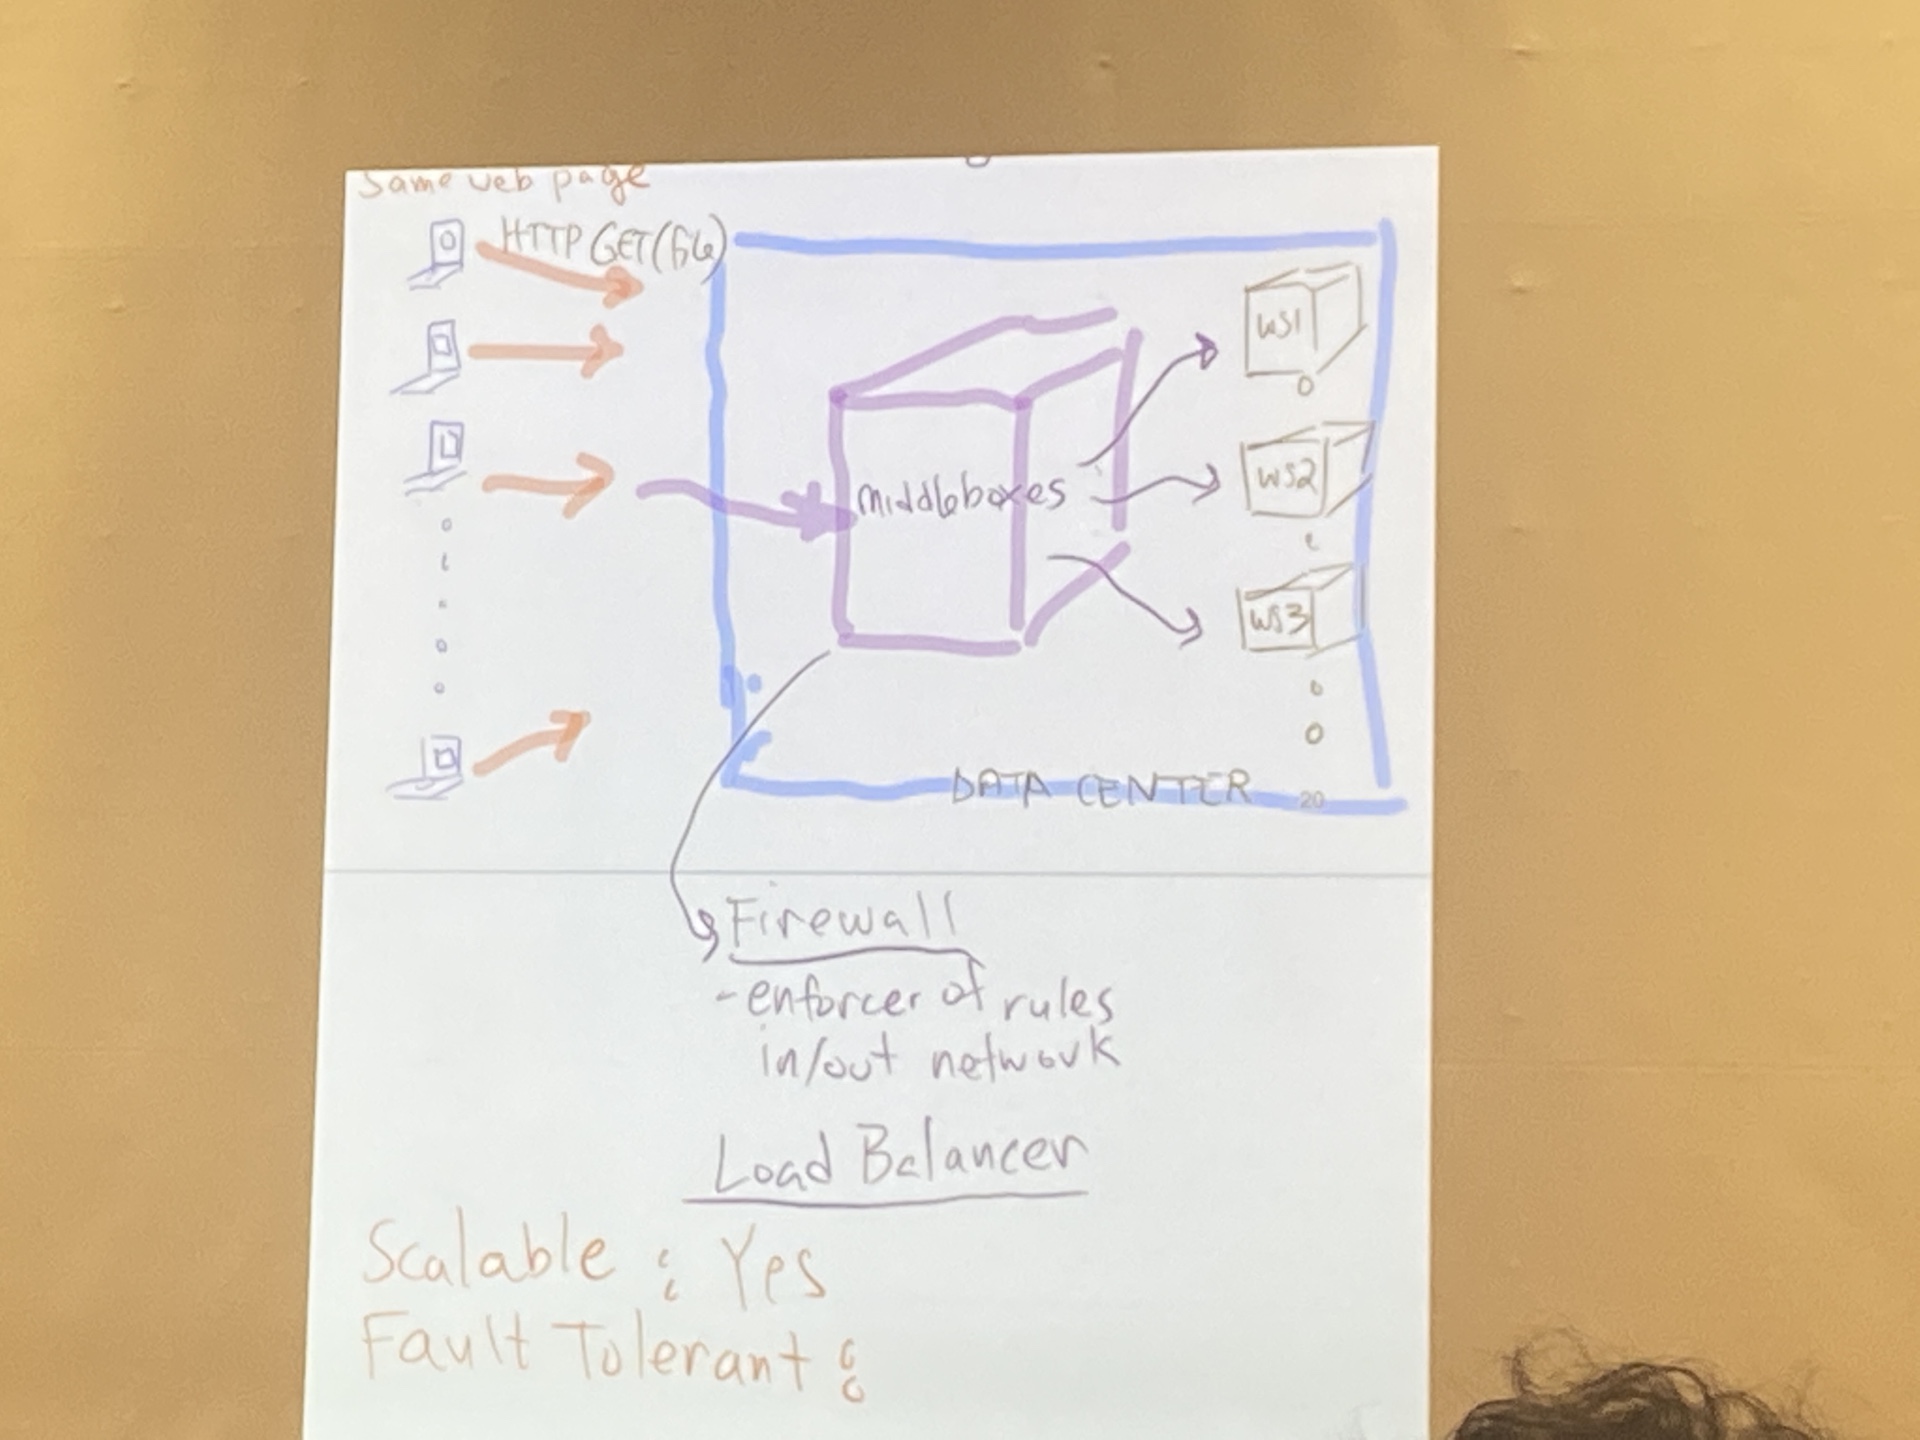 Same web page
HTTP GET(file)
WS1
middleboxes
WS2
WS3
DATA CENTER
20
Firewall
- enforcer of rules
in/out network
Load Balancer
Scalable : Yes
Fault Tolerant :